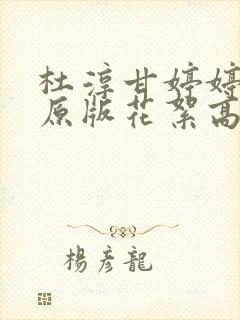 杜淳甘婷婷
原版花絮高
楊彦龍